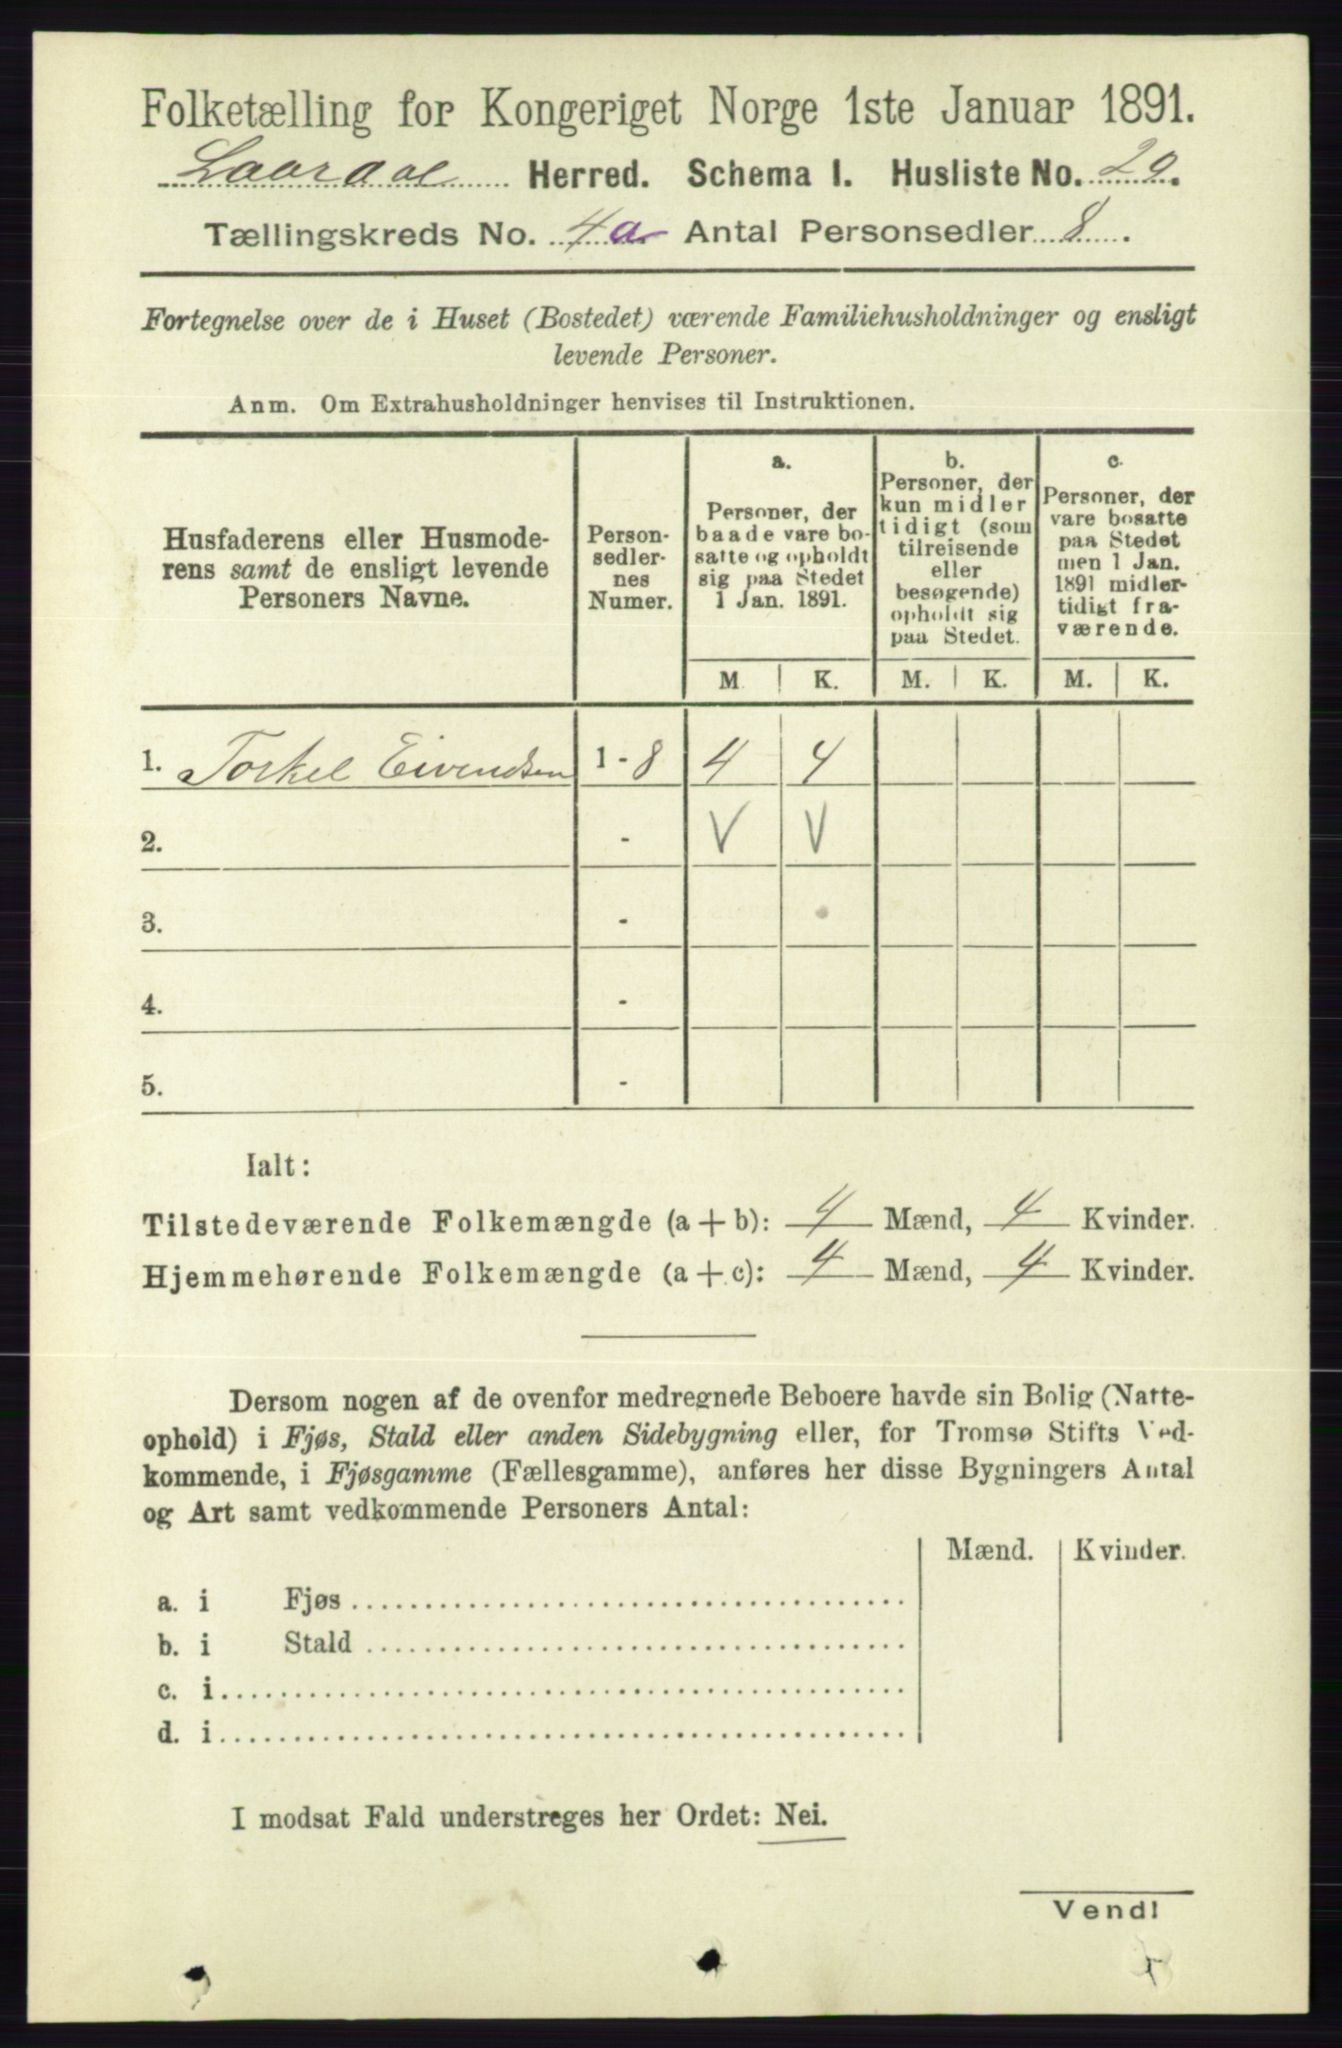 Folketælling for Kongeriget Norge 1ste Januar 1891.
Laardal Herred. Schema I. Husliste No. 20.
Tællingskreds No. 4a Antal Personsedler 8.
Fortegnelse over de i Huset (Bostedet) værende Familiehusholdninger og ensligt
levende Personer.
Anm. Om Extrahusholdninger henvises til Instruktionen.
Husfaderens eller Husmode-
rens samt de ensligt levende
Personers Navne.
Person-
sedler-
nes
Numer.
a.
Personer, der
baade vare bo-
satte og opholdt
sig paa Stedet
1 Jan. 1891.
b.
Personer, der
kun midler
tidigt (som
tilreisende
eller
besøgende)
opholdt sig
paa Stedet.
c.
Personer, der
vare bosatte
paa Stedet
men 1 Jan.
1891 midler-
tidigt fra-
værende.
M. K. M. K. M. K.
1. Torkel Eivendsen 1 - 8 4 4
2. - V V
3. -
4. -
5. -
Ialt:
Tilstedeværende Folkemængde (a + b): 4 Mænd, 4 Kvinder.
Hjemmehørende Folkemængde (a + c): 4 Mænd, 4 Kvinder.
Dersom nogen af de ovenfor medregnede Beboere havde sin Bolig (Natte-
ophold) i Fjøs, Stald eller anden Sidebygning eller, for Tromsø Stifts Ved-
kommende, i Fjøsgamme (Fællesgamme), anføres her disse Bygningers Antal
og Art samt vedkommende Personers Antal:
Mænd. Kvinder.
a. i Fjøs
b. i Stald
c. i
d. i
I modsat Fald understreges her Ordet: Nei.
Vend!